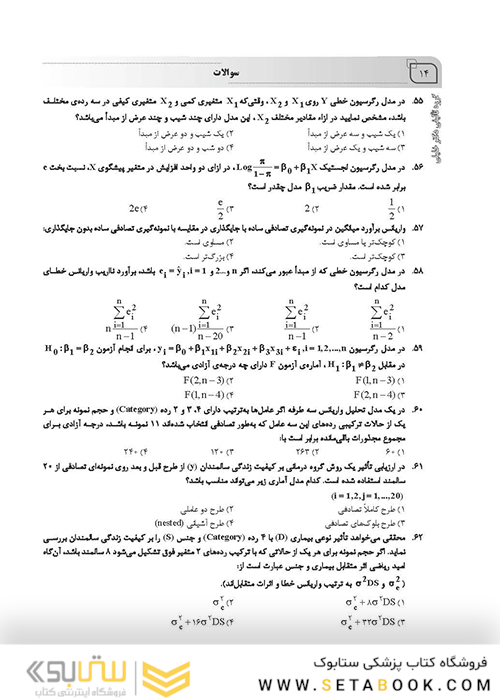 سوالات
۱۴
گروه تألیفی دکتر خلیلی
۵۵. در مدل رگرسیون خطی Y روی X₁ و X₂ ، وقتی‌که X₁ متغیری کمی و X₂ متغیری کیفی در سه رده‌ی مختلف
باشد، مشخص نمایید در ازاء مقادیر مختلف X₂ ، این مدل دارای چند شیب و چند عرض از مبدأ می‌باشد؟
۱) یک شیب و سه عرض از مبدأ
۲) یک شیب و دو عرض از مبدأ
۳) سه شیب و یک عرض از مبدأ
۴) دو شب و دو عرض از مبدأ
۵۶. در مدل رگرسیون لجستیک Log π/(1−π) = β₀ + β₁X ، در ازای دو واحد افزایش در متغیر پیشگوی X، نسبت بخت e
برابر شده است. مقدار ضریب β₁ مدل چقدر است؟
۱) 1/2
۲) 2
۳) e/2
۴) 2e
۵۷. واریانس برآورد میانگین در نمونه‌گیری تصادفی ساده با جایگذاری در مقایسه با نمونه‌گیری تصادفی ساده بدون جایگذاری:
۱) کوچک‌تر یا مساوی است.
۲) مساوی است.
۳) کوچک‌تر است.
۴) بزرگ‌تر است.
۵۸. در مدل رگرسیون خطی که از مبدأ عبور می‌کند، اگر eᵢ = ŷᵢ , i = 1 و 2... و n باشد، برآورد نااریب واریانس خطـای
مدل کدام است؟
۱) ∑ᵢ₌₁ⁿ eᵢ² / (n−2)
۲) ∑ᵢ₌₁ⁿ eᵢ² / (n−1)
۳) (n−1) ∑ᵢ₌₁ⁿ eᵢ² / (n−20)
۴) n ∑ᵢ₌₁ⁿ eᵢ² / (n−1)
۵۹. در مدل رگرسیون yᵢ = β₀ + β₁x₁ᵢ + β₂x₂ᵢ + β₃x₃ᵢ + εᵢ , i = 1,2,...,n ، برای انجام آزمون H₀ : β₁ = β₂
در مقابل H₁ : β₁ ≠ β₂ ، آماره‌ی آزمون F دارای چه درجه‌ی آزادی می‌باشد؟
۱) F(1,n−3)
۲) F(2,n−3)
۳) F(2,n−4)
۴) F(1,n−4)
۶۰. در یک مدل تحلیل واریانس سه طرفه اگر عامل‌ها به‌ترتیب دارای ۴، ۳ و ۲ رده (Category) و حجم نمونه برای هـر
یک از حالات ترکیبی رده‌های این سه عامل که به‌طور تصادفی انتخاب شده‌اند ۱۱ نمونـه باشـد، درجـه آزادی بـرای
مجموع مجذورات باقی‌مانده برابر است با:
۱) ۶۰
۲) ۲۶۳
۳) ۱۲۰
۴) ۲۴۰
۶۱. در ارزیابی تأثیر یک روش گروه درمانی بر کیفیت زندگی سالمندان (y) از طرح قبل و بعد روی نمونه‌ای تصادفی از ۲۰
سالمند استفاده شده است. کدام مدل آماری زیر می‌تواند مناسب باشد؟
(i = 1,2, j = 1,...,20)
۱) طرح کاملاً تصادفی
۲) طرح دو عاملی
۳) طرح بلوک‌های تصادفی
۴) طرح آشیانی (nested)
۶۲. محققی می‌خواهد تأثیر نوعی بیماری (D) با ۴ رده (Category) و جنس (S) را بر کیفیت زندگی سالمندان بررسـی
نماید. اگر حجم نمونه برای هر یک از حالاتی که با ترکیب رده‌های ۲ متغیر فوق تشکیل می‌شود ۸ سالمند باشد، آن‌گاه
امید ریاضی اثر متقابل بیماری و جنس عبارت است از:
(σₑ² و σ²DS به ترتیب واریانس خطا و اثرات متقابل‌اند).
۱) σₑ² + ۸σ²DS
۲) σₑ²
۳) σₑ² + ۳۲σ²DS
۴) σₑ² + ۱۶σ²DS
فروشگاه کتاب پزشکی ستابوک
WWW.SETABOOK.COM
ستابوک
فروشگاه اینترنتی کتاب